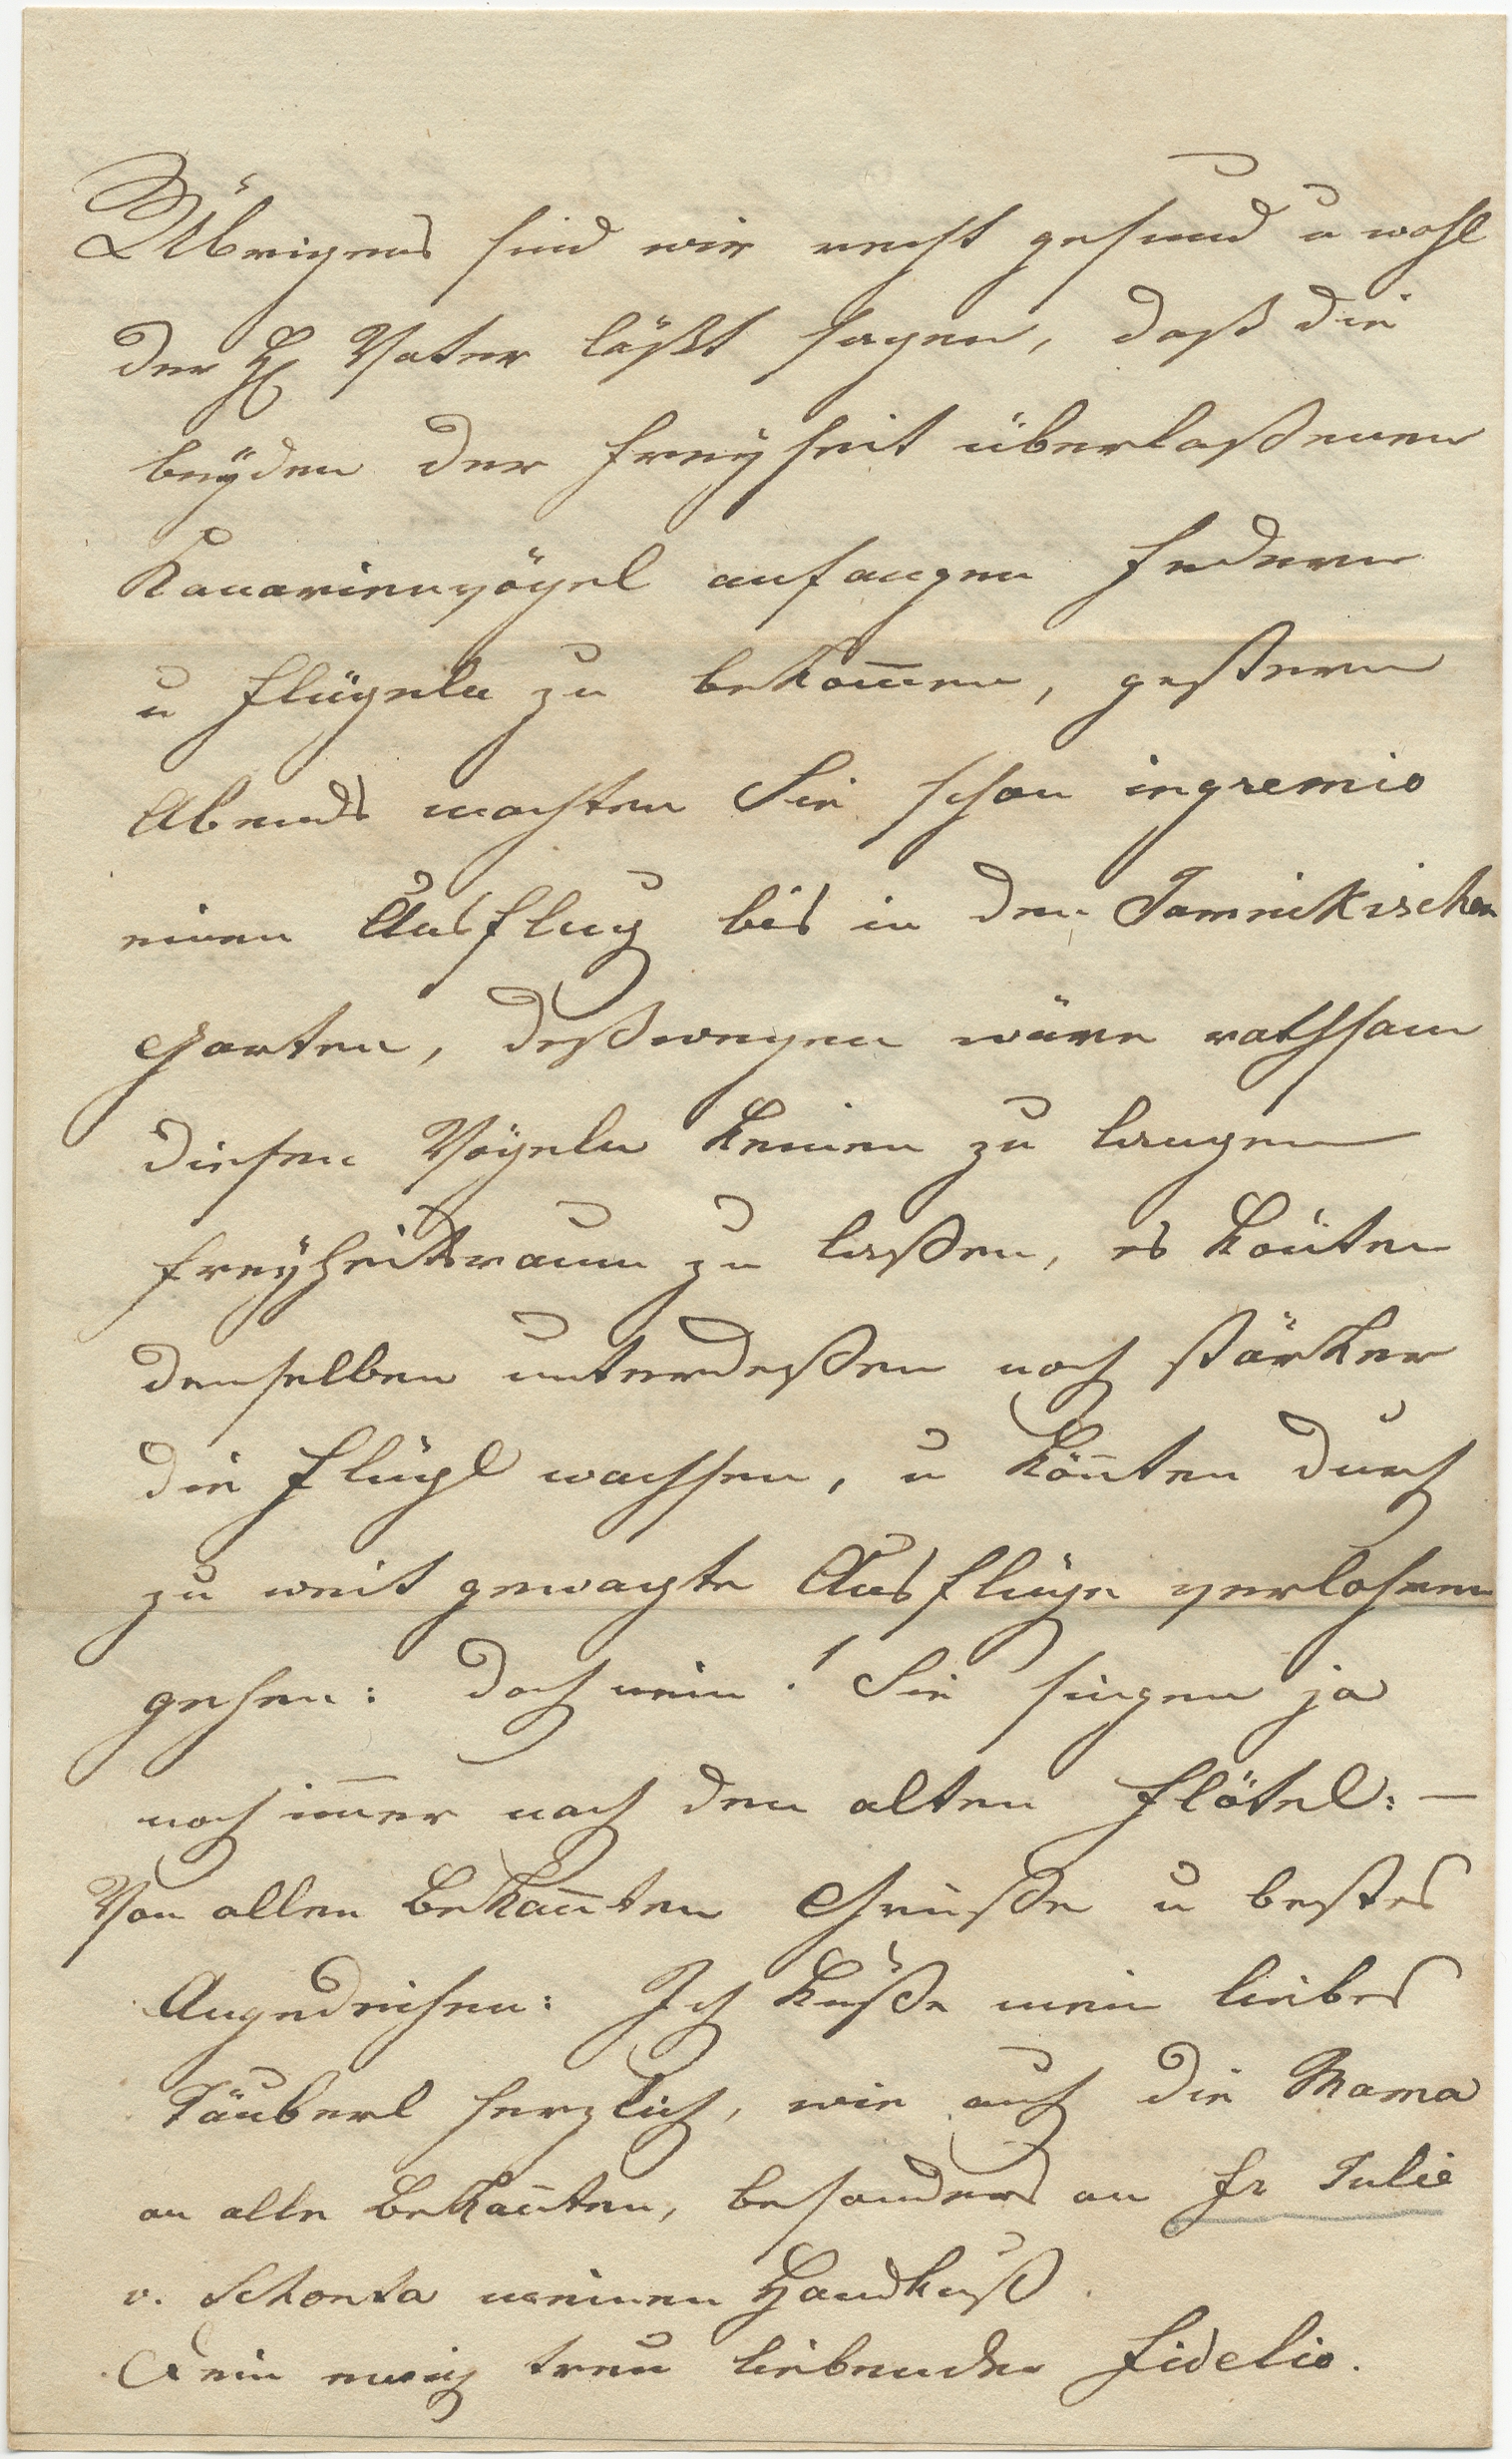 Übrigens sind wir recht gesund u wohl
der H Vater läßt sagen, daß die
beÿden der Freÿheit überlaßenen
Kanarienvögel anfangen Federn
u Flügeln zu bekom̅en, gestern
Abends machten Sie schon ingremio
einen Ausflug bis in den
Garten, deßwegen wäre rathsam
diesen Vögeln keinen zu langen
Freÿheitsraum zu laßen, es kön̅ten
denselben unterdeßen noch stärker
die Flügl wachsen, u kön̅ten durch
zu weit gewagte Ausflüge verlohren
gehen: doch nein! Sie singen ja
noch im̅er nach dem alten Flötel: —
Von allen Bekan̅ten Grüße u bestes
Angedeihen: Ich küße mein liebes
Täuberl herzlich, wie auch die Mama
an alle Bekan̅ten, besonders an Fr Julie
v. Schonta meinen Handkuß.
Dein ewig treu liebender Fidelio.